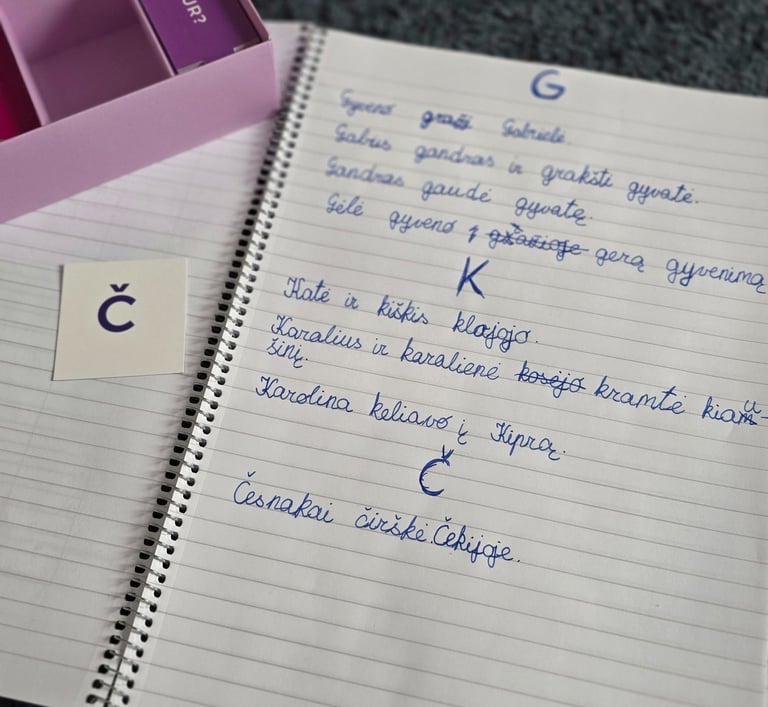 UR?
Č
G
Gyveno graži Gabrielė.
Gabus gandras ir grakšti gyvatė.
Gandras gaudė gyvatę.
Gėlė gyveno gerą gyvenimą
K
Katė ir kiškis klajojo.
Karalius ir karalienė kosėjo kramtė kiau-
šinį.
Karolina keliavo į Kiprą.
Č
Česnakai čirškė. Čekijoje.